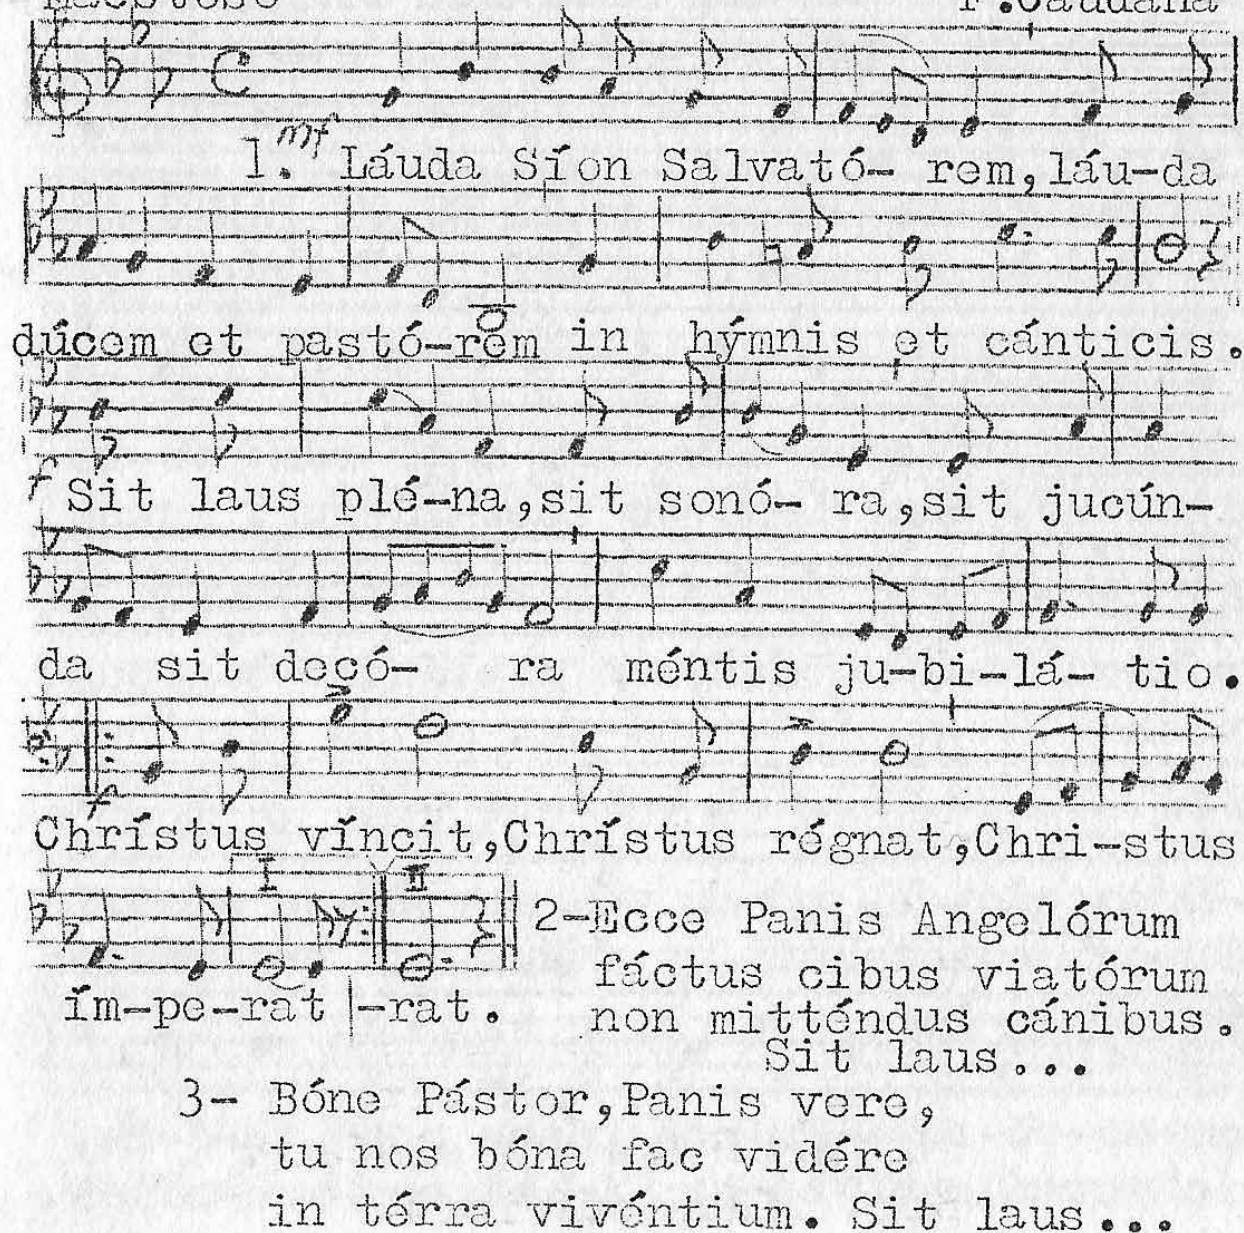 Maestoso F.Caudana
mf
1. Láuda Síon Salvató- rem,láu-da
dúcem et pastó-rem in hýmnis et cánticis.
f Sit laus plé-na,sit sonó- ra,sit jucún-
da sit decó- ra méntis ju-bi-lá- tio.
f
Chrístus víncit,Chrístus régnat,Chri-stus
I II
ím-pe-rat |-rat.
2-Ecce Panis Angelórum
fáctus cibus viatórum
non mitténdus cánibus.
Sit laus...
3- Bóne Pástor,Panis vere,
tu nos bóna fac vidére
in térra vivéntium. Sit laus...